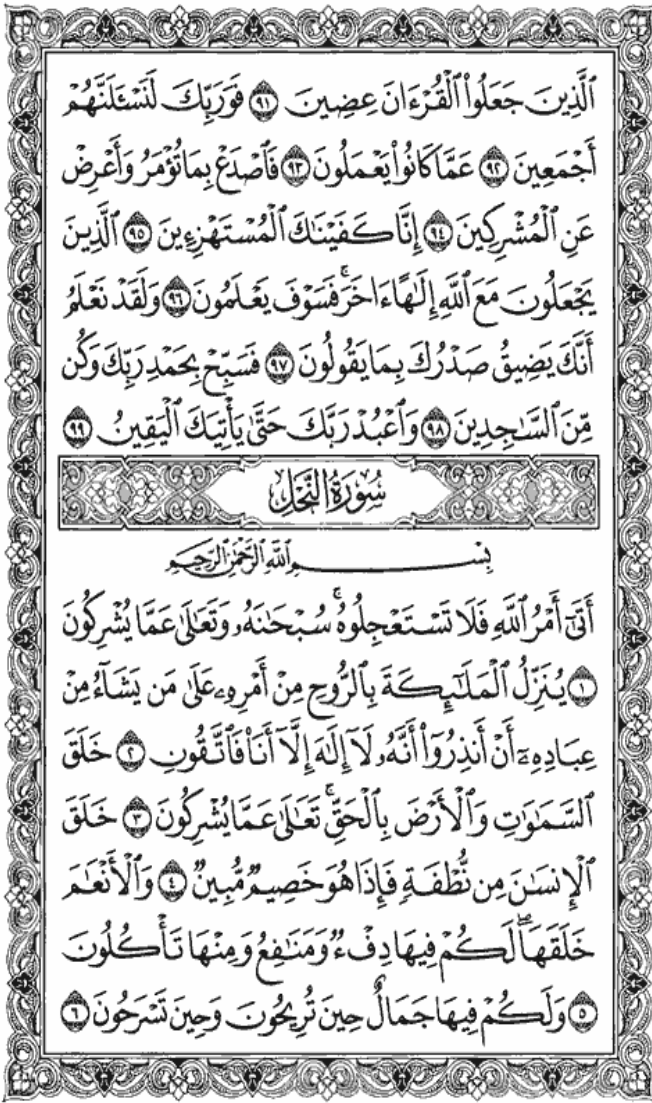 ٱلَّذِينَ جَعَلُوا۟ ٱلْقُرْءَانَ عِضِينَ ٩١ فَوَرَبِّكَ لَنَسْـَٔلَنَّهُمْ
أَجْمَعِينَ ٩٢ عَمَّا كَانُوا۟ يَعْمَلُونَ ٩٣ فَٱصْدَعْ بِمَا تُؤْمَرُ وَأَعْرِضْ
عَنِ ٱلْمُشْرِكِينَ ٩٤ إِنَّا كَفَيْنَـٰكَ ٱلْمُسْتَهْزِءِينَ ٩٥ ٱلَّذِينَ
يَجْعَلُونَ مَعَ ٱللَّهِ إِلَـٰهًا ءَاخَرَ ۚ فَسَوْفَ يَعْلَمُونَ ٩٦ وَلَقَدْ نَعْلَمُ
أَنَّكَ يَضِيقُ صَدْرُكَ بِمَا يَقُولُونَ ٩٧ فَسَبِّحْ بِحَمْدِ رَبِّكَ وَكُن
مِّنَ ٱلسَّـٰجِدِينَ ٩٨ وَٱعْبُدْ رَبَّكَ حَتَّىٰ يَأْتِيَكَ ٱلْيَقِينُ ٩٩
سُورَةُ النَّحْلِ
بِسْمِ ٱللَّهِ ٱلرَّحْمَـٰنِ ٱلرَّحِيمِ
أَتَىٰٓ أَمْرُ ٱللَّهِ فَلَا تَسْتَعْجِلُوهُ ۚ سُبْحَـٰنَهُۥ وَتَعَـٰلَىٰ عَمَّا يُشْرِكُونَ
١ يُنَزِّلُ ٱلْمَلَـٰٓئِكَةَ بِٱلرُّوحِ مِنْ أَمْرِهِۦ عَلَىٰ مَن يَشَآءُ مِنْ
عِبَادِهِۦٓ أَنْ أَنذِرُوٓا۟ أَنَّهُۥ لَآ إِلَـٰهَ إِلَّآ أَنَا۠ فَٱتَّقُونِ ٢ خَلَقَ
ٱلسَّمَـٰوَٰتِ وَٱلْأَرْضَ بِٱلْحَقِّ ۚ تَعَـٰلَىٰ عَمَّا يُشْرِكُونَ ٣ خَلَقَ
ٱلْإِنسَـٰنَ مِن نُّطْفَةٍ فَإِذَا هُوَ خَصِيمٌ مُّبِينٌ ٤ وَٱلْأَنْعَـٰمَ
خَلَقَهَا ۗ لَكُمْ فِيهَا دِفْءٌ وَمَنَـٰفِعُ وَمِنْهَا تَأْكُلُونَ
٥ وَلَكُمْ فِيهَا جَمَالٌ حِينَ تُرِيحُونَ وَحِينَ تَسْرَحُونَ ٦